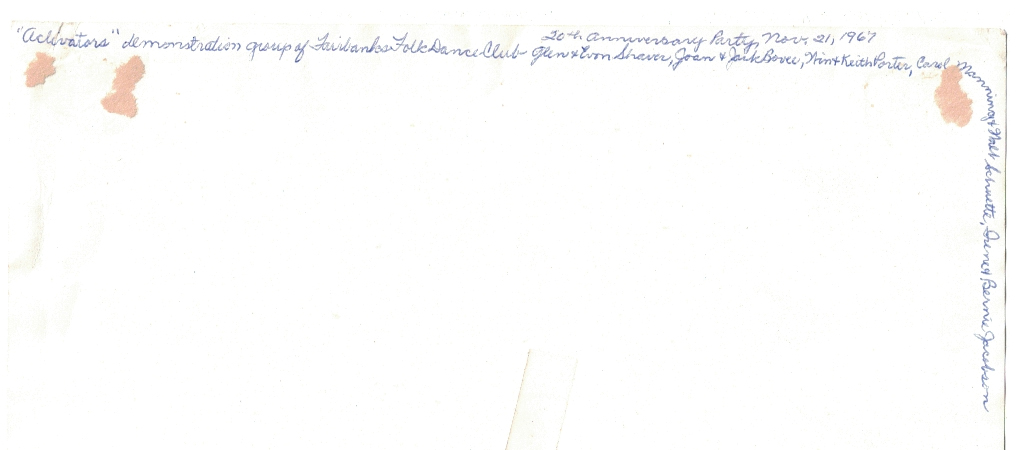 20th Anniversary Party, Nov. 21, 1967
"Activators" demonstration group of Fairbanks Folk Dance Club - Glen & Evon Shaver, Joan & Jack Bovee, Win & Keith Porter, Carol Manning & Walt Schuette, Irene & Bernie Jacobson